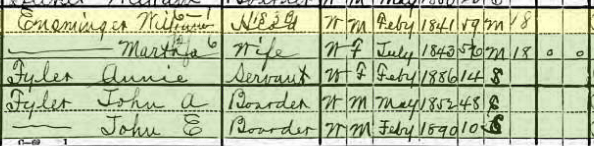 Ensminger William 6-1 Head W M Feby 1841 59 M 18
— Martha 6 Wife W F July 1843 56 M 18 0 0
Tyler Annie Servant W F Feby 1886 14 S
Tyler John A Boarder W M May 1852 48 S
— John E Boarder W M Feby 1890 10 S